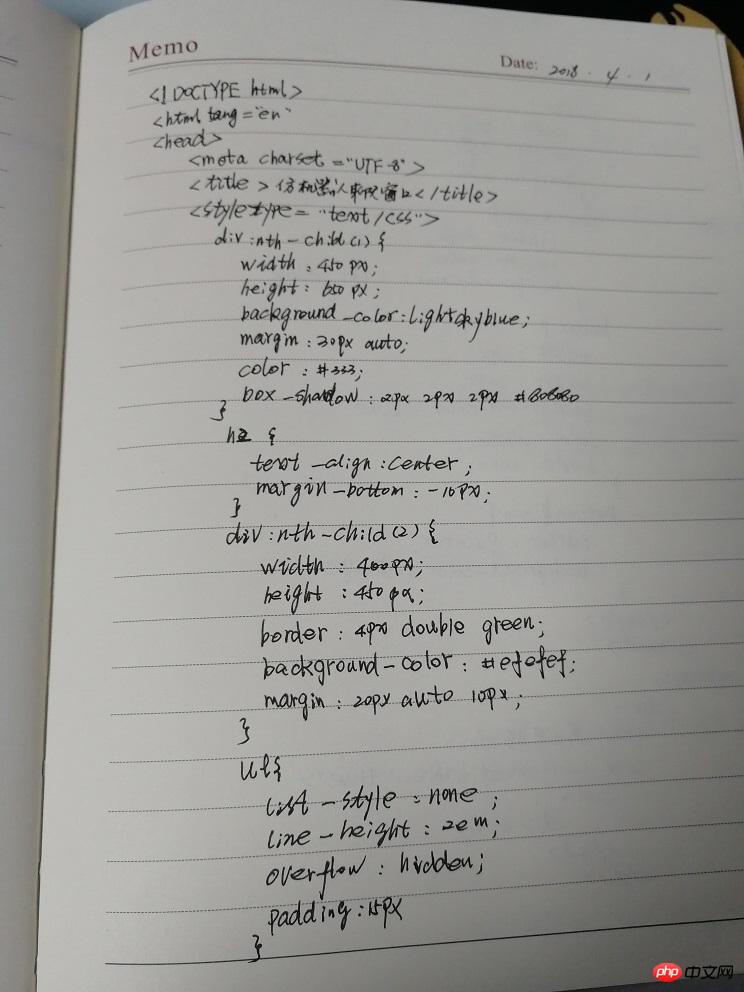 Memo
Date: 2018 . 4 . 1
<! DOCTYPE html>
<html lang="en"
<head>
<meta charset="UTF-8">
<title>仿机器人聊天窗口</title>
<style type="text/css">
div:nth-child(1){
width:450px;
height:650px;
background-color:lightskyblue;
margin:30px auto;
color:#333;
box-shadow:2px 2px 2px #808080
}
h2 {
text-align:center;
margin-bottom:-10px;
}
div:nth-child(2){
width:400px;
height:450px;
border:4px double green;
background-color:#efefef;
margin:20px auto 10px;
}
ul{
list-style:none;
line-height:2em;
overflow:hidden;
padding:15px
}
php 中文网